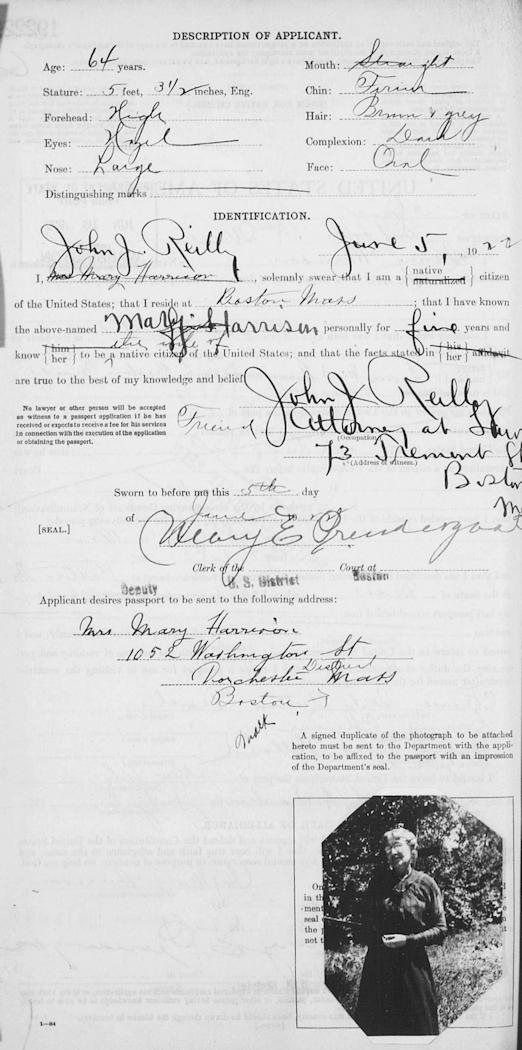 DESCRIPTION OF APPLICANT.
Age: 64 years.
Mouth: Straight
Stature: 5 feet, 3 1/2 inches, Eng.
Chin: Firm
Forehead: High
Hair: Brown & grey
Eyes: Hazel
Complexion: Dark
Nose: Large
Face: Oval
Distinguishing marks
IDENTIFICATION.
John J. Reilly June 5, 1922
I, Mrs Mary Harrison, solemnly swear that I am a { native naturalized } citizen
of the United States; that I reside at Boston Mass; that I have known
the above-named Mary Harrison personally for five years and
know { him her } to be the wife of a native citizen of the United States; and that the facts stated in { his her } affidavit
are true to the best of my knowledge and belief.
John J. Reilly
No lawyer or other person will be accepted
as witness to a passport application if he has
received or expects to receive a fee for his services
in connection with the execution of the application
or obtaining the passport.
Friend Attorney at Law
(Occupation.)
73 Tremont St
(Address of witness.)
Boston
Sworn to before me this 5th day
of June
[SEAL.]
Mary E Prendergast
Clerk of the U. S. District Court at Boston
Deputy
Applicant desires passport to be sent to the following address:
Mrs Mary Harrison
1052 Washington St
Dorchester District Mass
Boston
A signed duplicate of the photograph to be attached
hereto must be sent to the Department with the appli-
cation, to be affixed to the passport with an impression
of the Department's seal.
On
in th
ment
seal
the p
not t
1—84